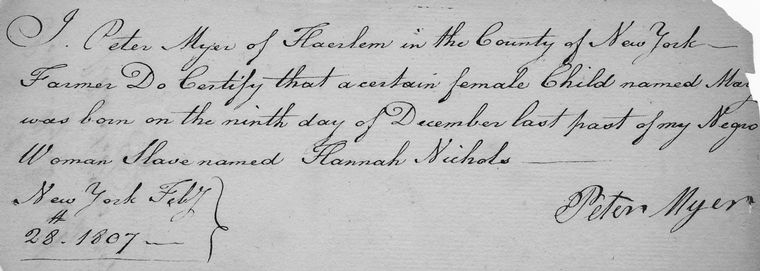 I. Peter Myer of Haerlem in the County of New York —
Farmer Do Certify that a certain female Child named Mary
was born on the ninth day of December last past of my Negro
Woman Slave named Hannah Nichols —
New York Feby
28th. 1807 —
Peter Myer